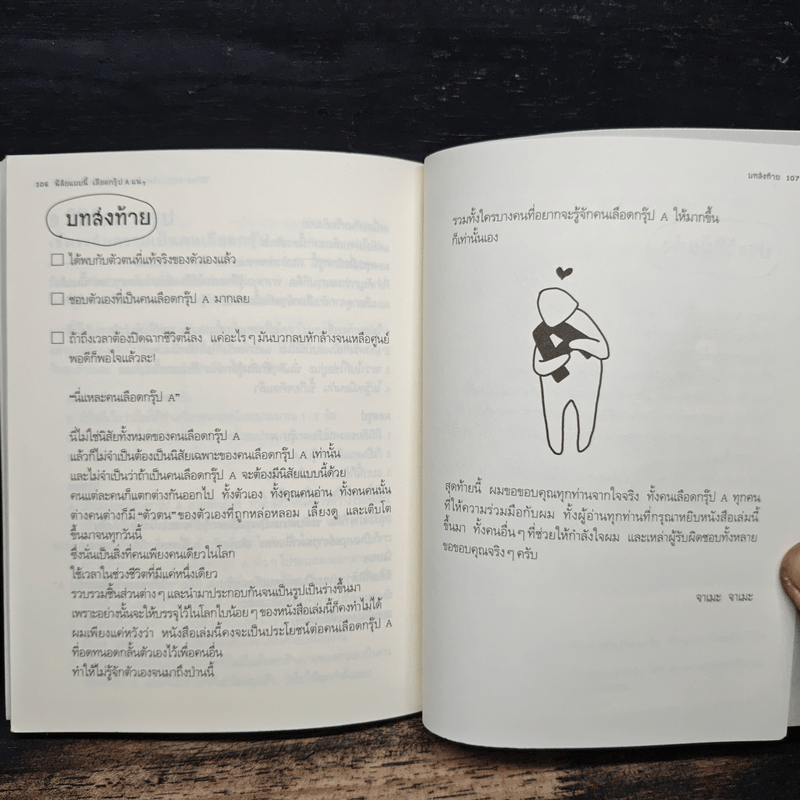 106 นิสัยแบบนี้ เลือดกรุ๊ป A แน่ๆ
บทส่งท้าย
ได้พบกับตัวตนที่แท้จริงของตัวเองแล้ว
ชอบตัวเองที่เป็นคนเลือดกรุ๊ป A มากเลย
ถ้าถึงเวลาต้องปิดฉากชีวิตนี้ลง แค่อะไรๆ มันบวกลบหักล้างจนเหลือศูนย์
พอดีก็พอใจแล้วละ!
"นี่แหละคนเลือดกรุ๊ป A"
นี่ไม่ใช่นิสัยทั้งหมดของคนเลือดกรุ๊ป A
แล้วก็ไม่จำเป็นต้องเป็นนิสัยเฉพาะของคนเลือดกรุ๊ป A เท่านั้น
และไม่จำเป็นว่าถ้าเป็นคนเลือดกรุ๊ป A จะต้องมีนิสัยแบบนี้ด้วย
คนแต่ละคนก็แตกต่างกันออกไป ทั้งตัวเอง ทั้งคุณคนอ่าน ทั้งคนคนนั้น
ต่างคนต่างก็มี "ตัวตน" ของตัวเองที่ถูกหล่อหลอม เลี้ยงดู และเติบโต
ขึ้นมาจนทุกวันนี้
ซึ่งนั่นเป็นสิ่งที่คนเพียงคนเดียวในโลก
ใช้เวลาในช่วงชีวิตที่มีแค่หนึ่งเดียว
รวบรวมชิ้นส่วนต่างๆ และนำมาประกอบกันจนเป็นรูปเป็นร่างขึ้นมา
เพราะอย่างนั้นจะให้บรรจุไว้ในโลกใบน้อยๆ ของหนังสือเล่มนี้ก็คงทำไม่ได้
ผมเพียงแค่หวังว่า หนังสือเล่มนี้คงจะเป็นประโยชน์ต่อคนเลือดกรุ๊ป A
ที่อดทนอดกลั้นตัวเองไว้เพื่อคนอื่น
ทำให้ไม่รู้จักตัวเองจนมาถึงป่านนี้
บทส่งท้าย 107
รวมทั้งใครบางคนที่อยากจะรู้จักคนเลือดกรุ๊ป A ให้มากขึ้น
ก็เท่านั้นเอง
สุดท้ายนี้ ผมขอขอบคุณทุกท่านจากใจจริง ทั้งคนเลือดกรุ๊ป A ทุกคน
ที่ให้ความร่วมมือกับผม ทั้งผู้อ่านทุกท่านที่กรุณาหยิบหนังสือเล่มนี้
ขึ้นมา ทั้งคนอื่นๆ ที่ช่วยให้กำลังใจผม และเหล่าผู้รับผิดชอบทั้งหลาย
ขอขอบคุณจริงๆ ครับ
จาเมะ จาเมะ